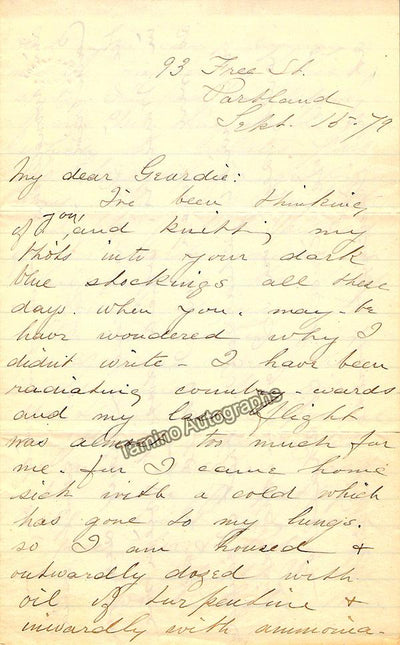 93 Free St.
Portland
Sept. 15-79
My dear Geardie:
I've been thinking
of you, and knitting my
thots into your dark
blue stockings all these
days. when you. may-be
have wondered why I
didn't write - I have been
radiating country-wards
and my last flight
was almost too much for
me. for I came home
sick with a cold which
has gone to my lungs.
so I am housed +
outwardly dozed with
oil of turpentine +
inwardly with ammonia-
Tamino Autographs